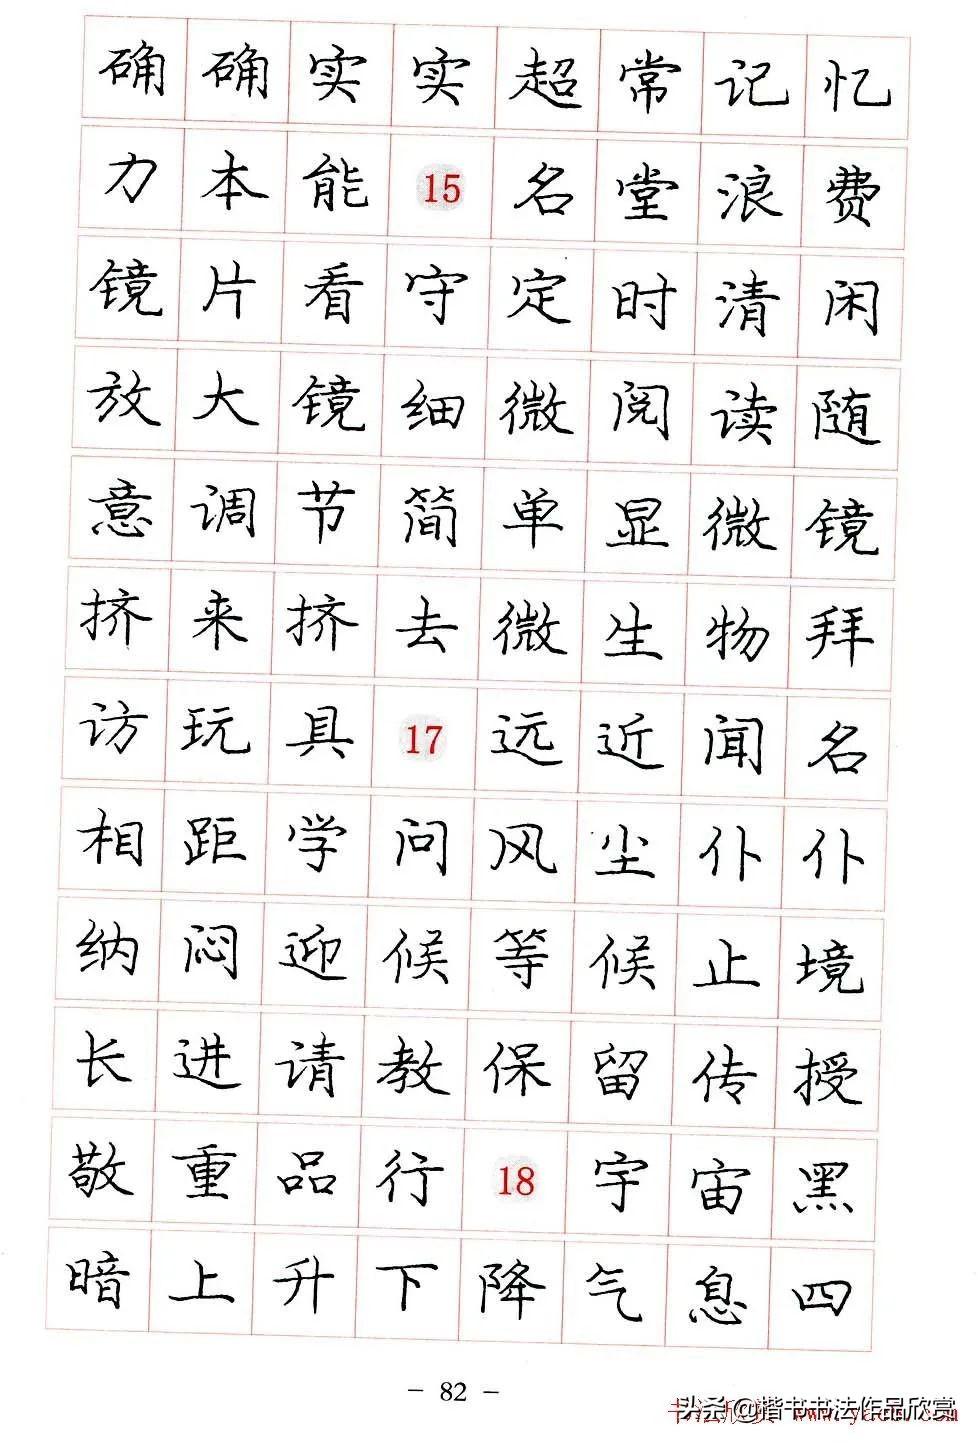 确确实实超常记忆
力本能15名堂浪费
镜片看守定时清闲
放大镜细微阅读随
意调节简单显微镜
挤来挤去微生物拜
访玩具17远近闻名
相距学问风尘仆仆
纳闷迎候等候止境
长进请教保留传授
敬重品行18宇宙黑
暗上升下降气息四
- 82 -
头条@楷书书法作品欣赏